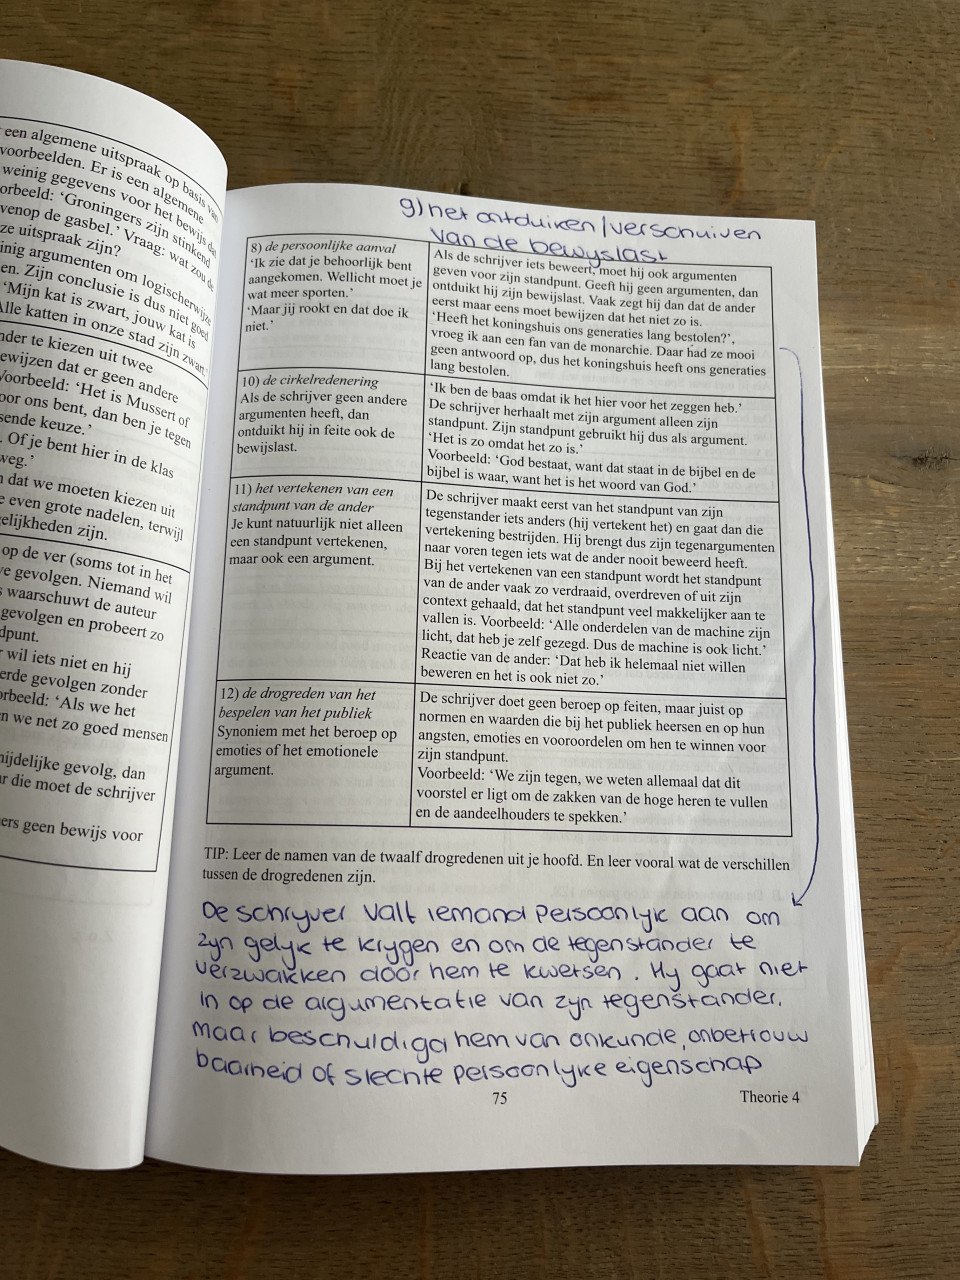 een algemene uitspraak op basis van
voorbeelden. Er is een algemene
weinig gegevens voor het bewijs dat
orbeeld: ‘Groningers zijn stinkend
venop de gasbel.’ Vraag: wat zou de
ze uitspraak zijn?
inig argumenten om logischerwijze
en. Zijn conclusie is dus niet goed
‘Mijn kat is zwart, jouw kat is
Alle katten in onze stad zijn zwart.’
nder te kiezen uit twee
ewijzen dat er geen andere
Voorbeeld: ‘Het is Mussert of
oor ons bent, dan ben je tegen
sende keuze.’
. Of je bent hier in de klas
weg.’
n dat we moeten kiezen uit
e even grote nadelen, terwijl
gelijkheden zijn.
op de ver (soms tot in het
ve gevolgen. Niemand wil
s waarschuwt de auteur
gevolgen en probeert zo
dpunt.
r wil iets niet en hij
erde gevolgen zonder
orbeeld: ‘Als we het
n we net zo goed mensen
nijdelijke gevolg, dan
ar die moet de schrijver
ers geen bewijs voor
9) het ontduiken/verschuiven
van de bewijslast
8) de persoonlijke aanval
‘Ik zie dat je behoorlijk bent
aangekomen. Wellicht moet je
wat meer sporten.’
‘Maar jij rookt en dat doe ik
niet.’
Als de schrijver iets beweert, moet hij ook argumenten
geven voor zijn standpunt. Geeft hij geen argumenten, dan
ontduikt hij zijn bewijslast. Vaak zegt hij dan dat de ander
eerst maar eens moet bewijzen dat het niet zo is.
‘Heeft het koningshuis ons generaties lang bestolen?’,
vroeg ik aan een fan van de monarchie. Daar had ze mooi
geen antwoord op, dus het koningshuis heeft ons generaties
lang bestolen.
10) de cirkelredenering
Als de schrijver geen andere
argumenten heeft, dan
ontduikt hij in feite ook de
bewijslast.
‘Ik ben de baas omdat ik het hier voor het zeggen heb.’
De schrijver herhaalt met zijn argument alleen zijn
standpunt. Zijn standpunt gebruikt hij dus als argument.
‘Het is zo omdat het zo is.’
Voorbeeld: ‘God bestaat, want dat staat in de bijbel en de
bijbel is waar, want het is het woord van God.’
11) het vertekenen van een
standpunt van de ander
Je kunt natuurlijk niet alleen
een standpunt vertekenen,
maar ook een argument.
De schrijver maakt eerst van het standpunt van zijn
tegenstander iets anders (hij vertekent het) en gaat dan die
vertekening bestrijden. Hij brengt dus zijn tegenargumenten
naar voren tegen iets wat de ander nooit beweerd heeft.
Bij het vertekenen van een standpunt wordt het standpunt
van de ander vaak zo verdraaid, overdreven of uit zijn
context gehaald, dat het standpunt veel makkelijker aan te
vallen is. Voorbeeld: ‘Alle onderdelen van de machine zijn
licht, dat heb je zelf gezegd. Dus de machine is ook licht.’
Reactie van de ander: ‘Dat heb ik helemaal niet willen
beweren en het is ook niet zo.’
12) de drogreden van het
bespelen van het publiek
Synoniem met het beroep op
emoties of het emotionele
argument.
De schrijver doet geen beroep op feiten, maar juist op
normen en waarden die bij het publiek heersen en op hun
angsten, emoties en vooroordelen om hen te winnen voor
zijn standpunt.
Voorbeeld: ‘We zijn tegen, we weten allemaal dat dit
voorstel er ligt om de zakken van de hoge heren te vullen
en de aandeelhouders te spekken.’
TIP: Leer de namen van de twaalf drogredenen uit je hoofd. En leer vooral wat de verschillen
tussen de drogredenen zijn.
De schrijver valt iemand persoonlijk aan om
zijn gelijk te krijgen en om de tegenstander te
verzwakken door hem te kwetsen. Hij gaat niet
in op de argumentatie van zijn tegenstander.
maar beschuldigd hem van onkunde, onbetrouw
baarheid of slechte persoonlijke eigenschap
75
Theorie 4